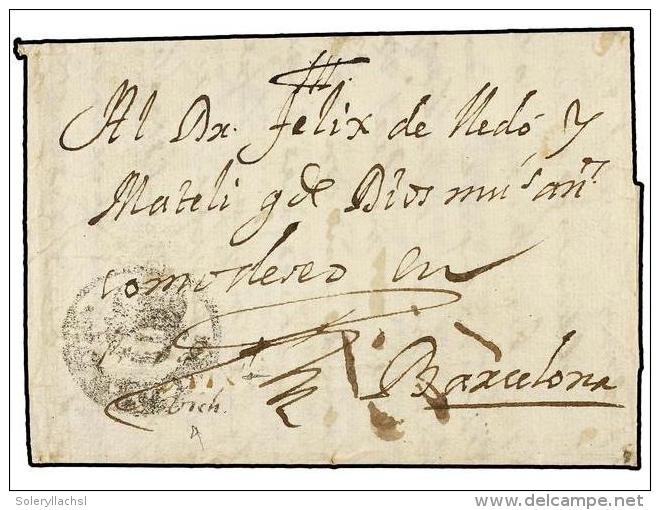 Al Dr. Felix de Nedó y
Mateli g de Dios mús an.s
como deseo en
Barcelona
Soleryllachsl
delcampe.net